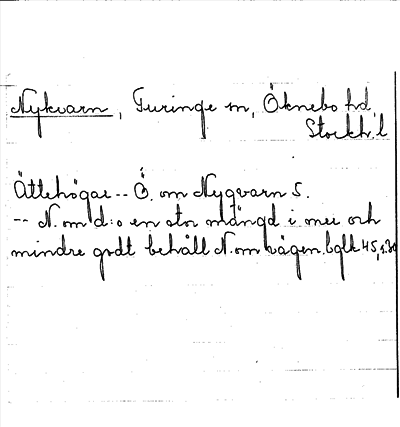 Nykvarn, Turinge sn, Öknebo hd,
Stockh. l
Ättehögar -- Ö. om Nyqvarn S.
-- N. om d:o en stor mängd i mer och
mindre godt behåll N. om vägen. bglk 45, s. 30